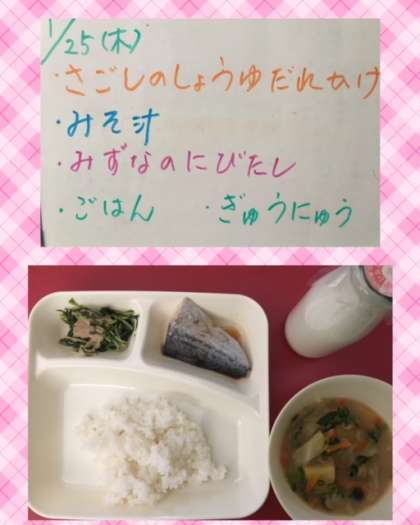 1/25(木)
・さごしのしょうゆだれかけ
・みそ汁
・みずなのにびたし
・ごはん ・ぎゅうにゅう